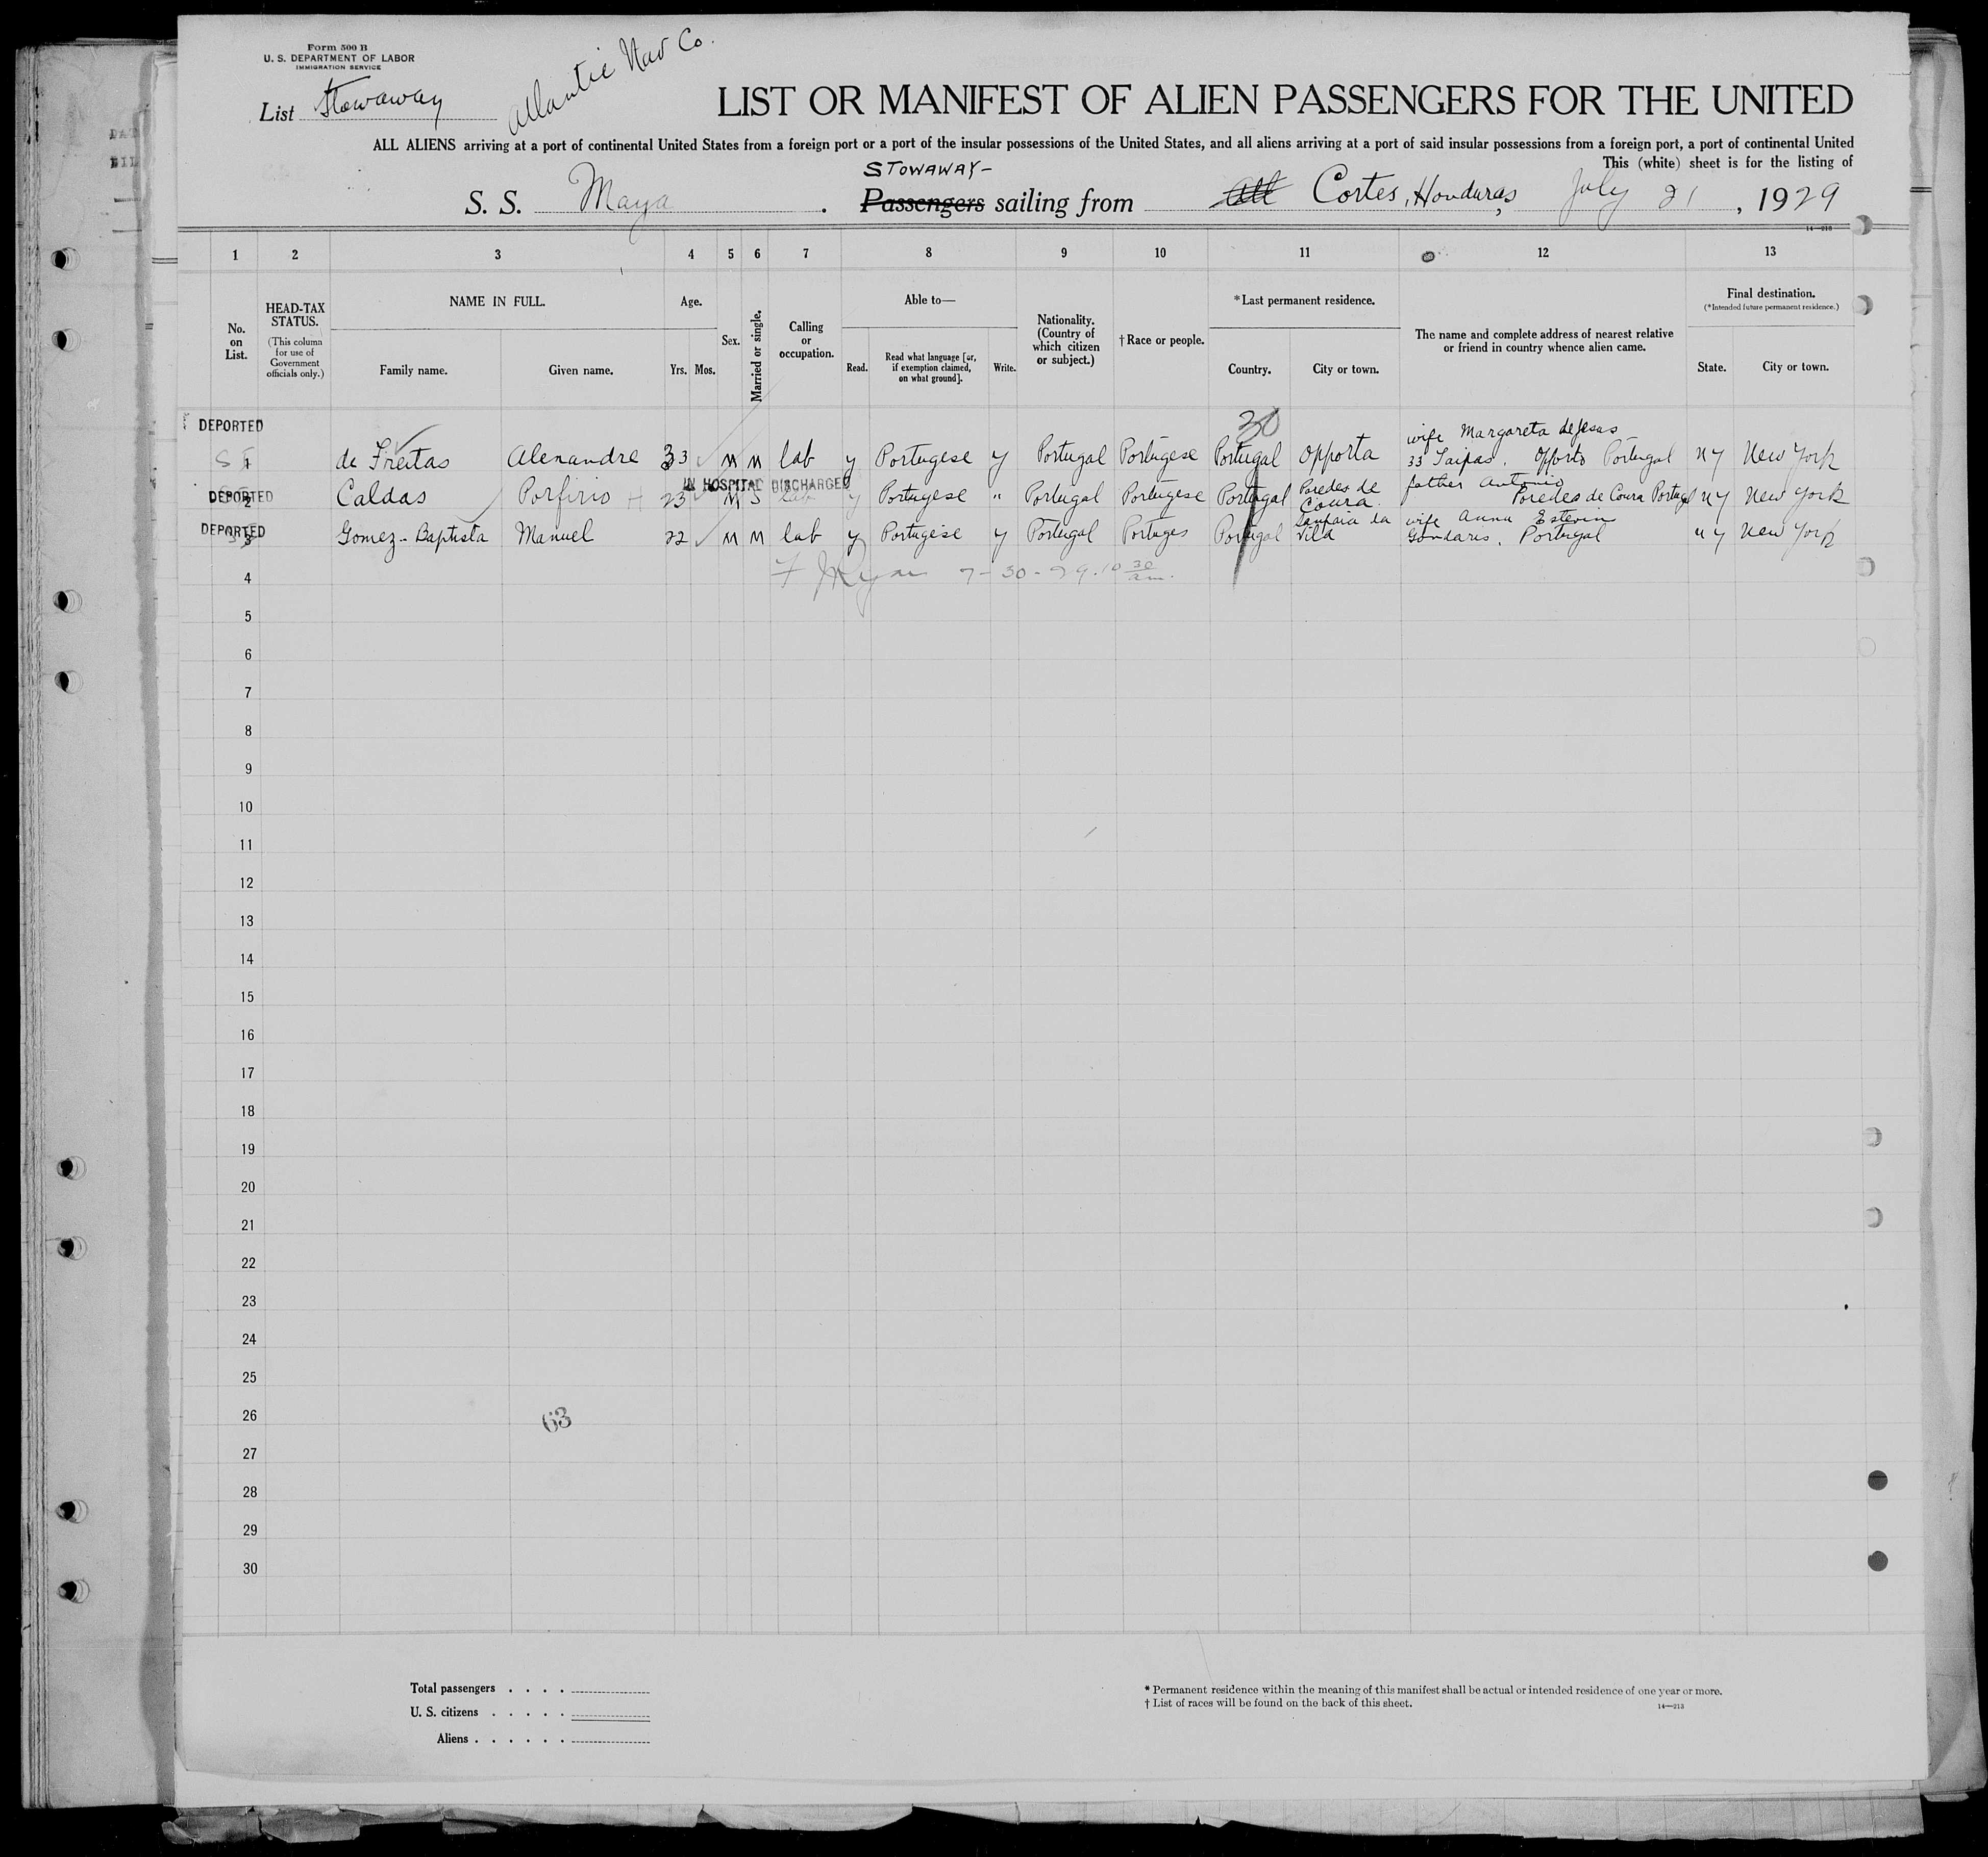 Form 500 B
U. S. DEPARTMENT OF LABOR
IMMIGRATION SERVICE
List Stowaway
Atlantic Nav Co.
LIST OR MANIFEST OF ALIEN PASSENGERS FOR THE UNITED
ALL ALIENS arriving at a port of continental United States from a foreign port or a port of the insular possessions of the United States, and all aliens arriving at a port of said insular possessions from a foreign port, a port of continental United
This (white) sheet is for the listing of
STOWAWAY-
S. S. Maya . Passengers sailing from Cortes, Honduras, July 21, 1929
14-213
1 2 3 4 5 6 7 8 9 10 11 12 13
No. on List.
HEAD-TAX STATUS.
(This column for use of Government officials only.)
NAME IN FULL.
Family name. Given name.
Age.
Yrs. Mos.
Sex.
Married or single.
Calling or occupation.
Able to—
Read. Read what language [or, if exemption claimed, on what ground]. Write.
Nationality. (Country of which citizen or subject.)
†Race or people.
*Last permanent residence.
Country. City or town.
The name and complete address of nearest relative or friend in country whence alien came.
Final destination.
(*Intended future permanent residence.)
State. City or town.
30
DEPORTED
wife Margareta de Jesus
1 de Freitas Alexandre 33 M M lab y Portugese y Portugal Portugese Portugal Opporta 33 Taipas, Opporto Portugal NY New York
IN HOSPITAL DISCHARGED
father Antonio
DEPORTED
2 Caldas Porfirio H 23 M S lab y Portugese " Portugal Portugese Portugal Paredes de Coura Paredes de Coura Portugal NY New York
DEPORTED
wife Anna Estevin
3 Gomez-Baptista Manuel 22 M M lab y Portugese y Portugal Portuges Portugal Vila Gondares, Portugal NY New York
4
F J Ryan 7-30-29. 10 30 am.
5
6
7
8
9
10
11
12
13
14
15
16
17
18
19
20
21
22
23
24
25
26
63
27
28
29
30
Total passengers . . . .
U. S. citizens . . . . .
Aliens . . . . . .
* Permanent residence within the meaning of this manifest shall be actual or intended residence of one year or more.
† List of races will be found on the back of this sheet.
14—213